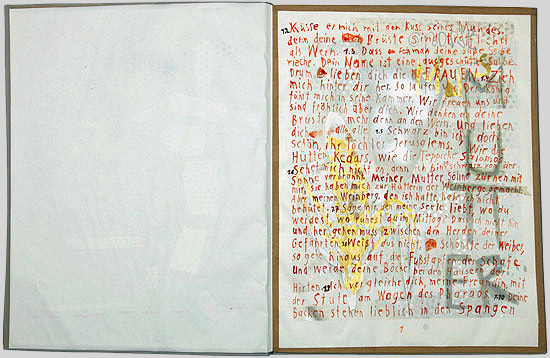 1.2 Küsse er mich mit dem Kuss seines Mundes,
denn deine Brüste sind trefflicher
als Wein. 1.3 Dass man deine süße Salbe
rieche. Dein Name ist eine ausgeschüttete Salbe.
Drum lieben dich die JUNGFRAUEN. Zieh
mich hinter dir her. So laufen wir. Der König
führt mich in seine Kammer. Wir freuen uns und
sind fröhlich über dich. Wir denken an deine
Brüste mehr denn an den Wein. Und lieben
dich alle, alle. 1.5 Schwarz bin ich, doch
schön, ihr Töchter Jerusalems. Wie die
Hütten Kedars, wie die Teppiche Salomos.
1.6 Seht mich nicht an, denn ich bin schwarz von der
Sonne verbrannt. Meiner Mutter Söhne zürnen mit
mir, sie haben mich zur Hüterin der Weinberge gemacht.
Aber meinen Weinberg, den ich hatte, habe ich nicht
behütet. Sage mir, den meine Seele liebt, wo du
weidest, wo ruhest du im Mittag? Dass ich nicht hin
und her gehen muss zwischen den Herden deiner
Gefährten. Weißt du's nicht, Schönste der Weiber,
so gehe hinaus auf die Fußstapfen der Schafe
und weide deine Böcke bei den Häusern der
Hirten. Ich vergleiche dich, meine Freundin, mit
der Stute am Wagen des Pharaos. 1.10 Deine
Backen stehen lieblich in den Spangen
1